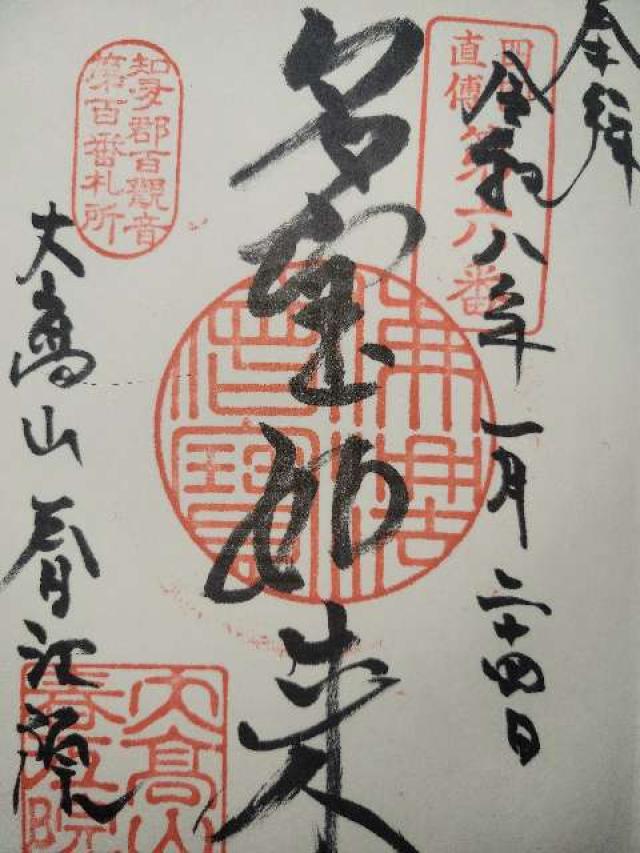 奉拝
令和八年一月二十四日
四国
直傳
第六番
多宝如来
佛法僧寶
知多郡百観音
第百番札所
大高山春江院
大高山
春江院